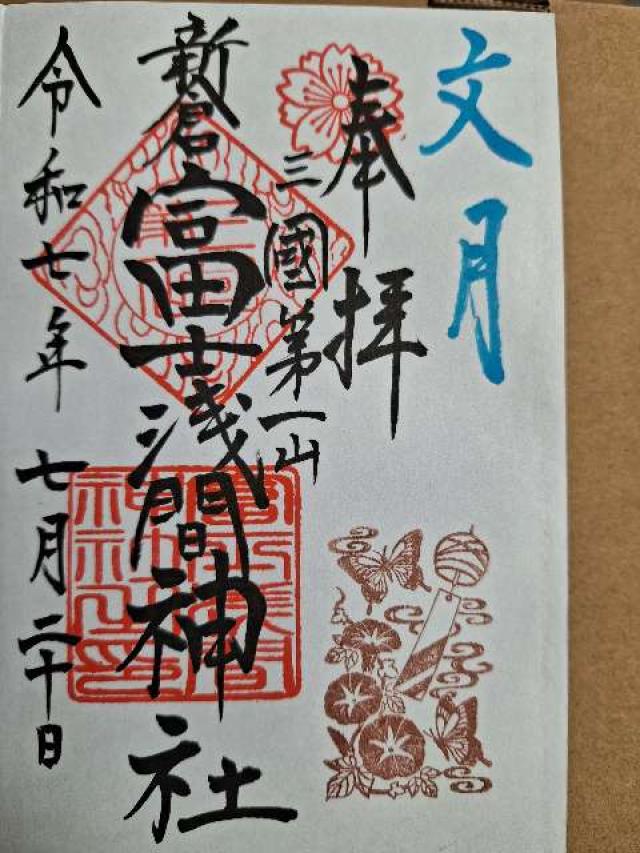 文月
奉拝
三國第一山
新倉富士浅間神社
令和七年七月二十日